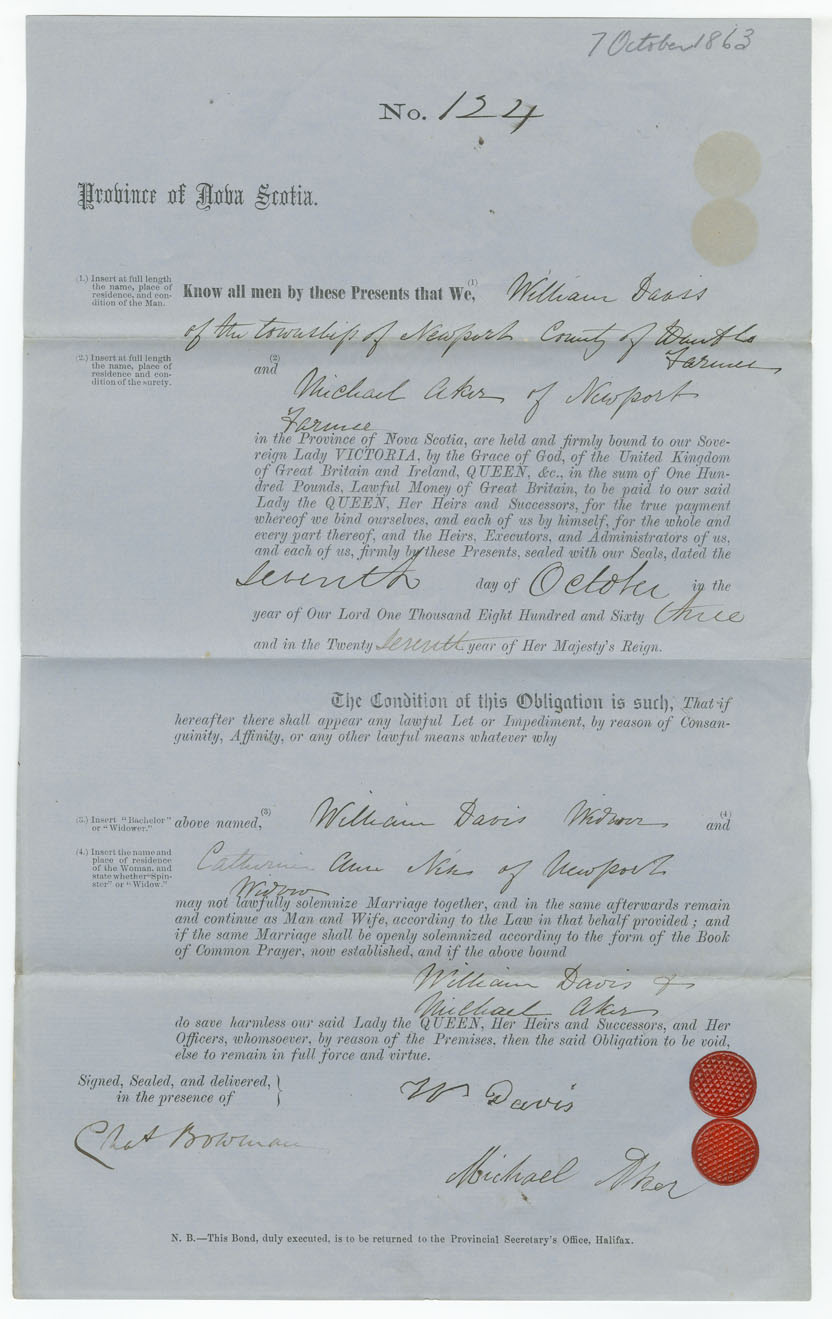 7 October 1863
No. 124
Province of Nova Scotia.
(1.) Insert at full length
the name, place of
residence, and con-
dition of the Man.
Know all men by these Presents that We,(1) William Davis
of the township of Newport County of
Farmer
(2.) Insert at full length
the name, place of
residence and con-
dition of the surety.
(2)
and
Michael Aker of Newport
Farmer
in the Province of Nova Scotia, are held and firmly bound to our Sove-
reign Lady VICTORIA, by the Grace of God, of the United Kingdom
of Great Britain and Ireland, QUEEN, &c., in the sum of One Hun-
dred Pounds, Lawful Money of Great Britain, to be paid to our said
Lady the QUEEN, Her Heirs and Successors, for the true payment
whereof we bind ourselves, and each of us by himself, for the whole and
every part thereof, and the Heirs, Executors, and Administrators of us,
and each of us, firmly by these Presents, sealed with our Seals, dated the
seventh day of October in the
year of Our Lord One Thousand Eight Hundred and Sixty three
and in the Twenty seventh year of Her Majesty's Reign.
The Condition of this Obligation is such, That if
hereafter there shall appear any lawful Let or Impediment, by reason of Consan-
guinity, Affinity, or any other lawful means whatever why
(3.) Insert "Bachelor"
or "Widower."
above named,(3) William Davis Widower (4) and
(4.) Insert the name and
place of residence
of the Woman, and
state whether "Spin-
ster" or "Widow."
Catherine Ann of Newport
Widow
may not lawfully solemnize Marriage together, and in the same afterwards remain
and continue as Man and Wife, according to the Law in that behalf provided; and
if the same Marriage shall be openly solemnized according to the form of the Book
of Common Prayer, now established, and if the above bound
William Davis &
Michael Aker
do save harmless our said Lady the QUEEN, Her Heirs and Successors, and Her
Officers, whomsoever, by reason of the Premises, then the said Obligation to be void,
else to remain in full force and virtue.
Signed, Sealed, and delivered, }
in the presence of
Wm Davis
Chas Bowman
Michael Aker
N. B.—This Bond, duly executed, is to be returned to the Provincial Secretary's Office, Halifax.